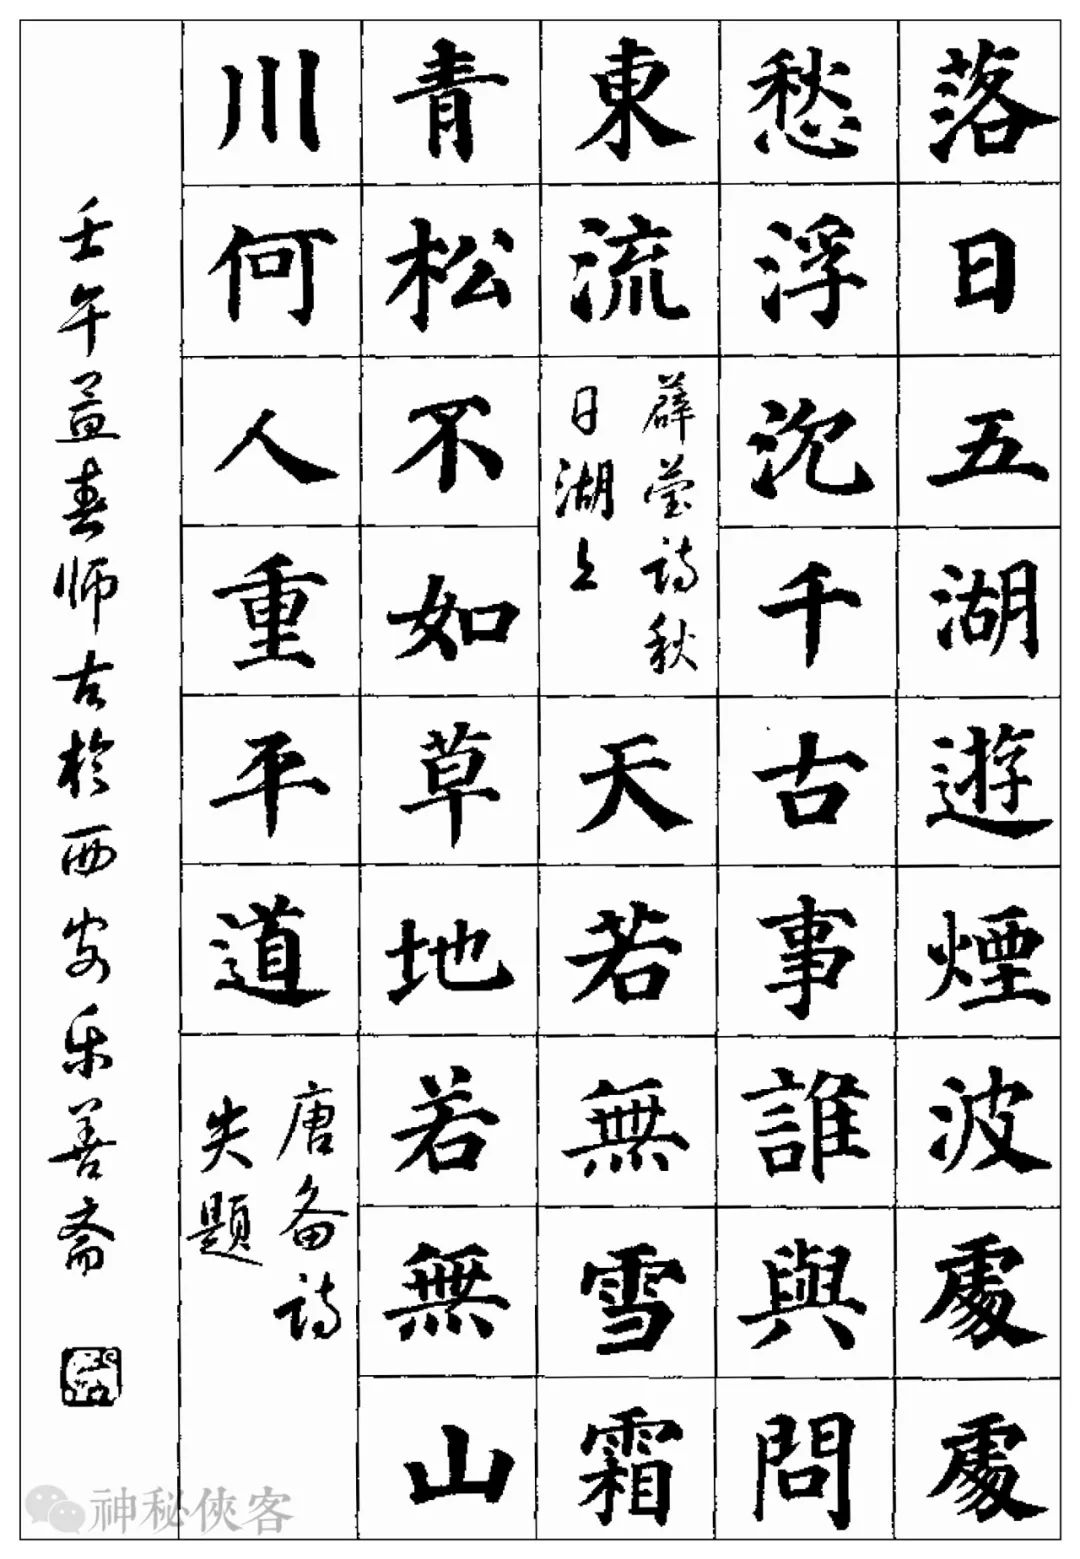 落日五湖遊煙波處處
愁浮沉千古事誰與問
東流
薛莹诗秋
日湖上
天若無雪霜
青松不如草地若無山
川何人重平道
唐备诗
失题
壬午孟春师古於西安乐善斋
神秘俠客